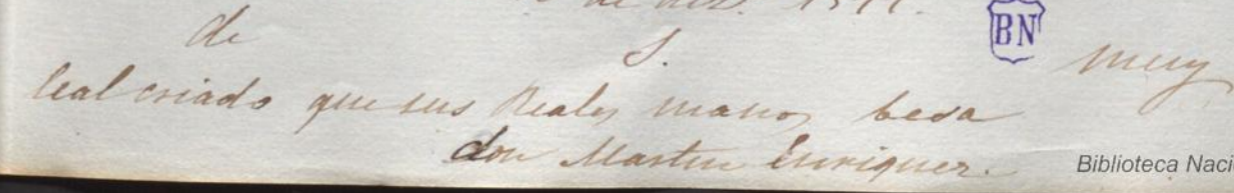 de dez.
de S. muy
BN
leal criado que sus Reales manos besa
don Martin Enriquez.
Biblioteca Naci